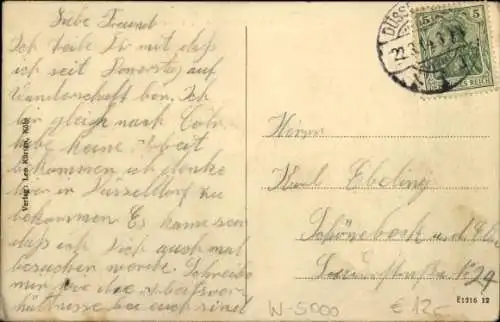 Liebe Freund
Ich teile Dir mit daß
ich seit Donerstag auf
Wanderschaft bon. Ich
bin gleich nach Cöln
habe keine Arbeit
bekommen ich denke
hier in Düsseldorf zu
bekommen Es kann sein
daß ich Dich auch mal
besuchen werde. Schreibe
mir wie die Arbeitsver-
hältnisse bei euch sind
Verlag: Leo Kürten, Köln
DÜSS
22.3.14
5 5
REICH
Herrn
Karl Ebeling
Schönebeck a. d. Elbe
29
E1316 12
W-5000
€ 12,-